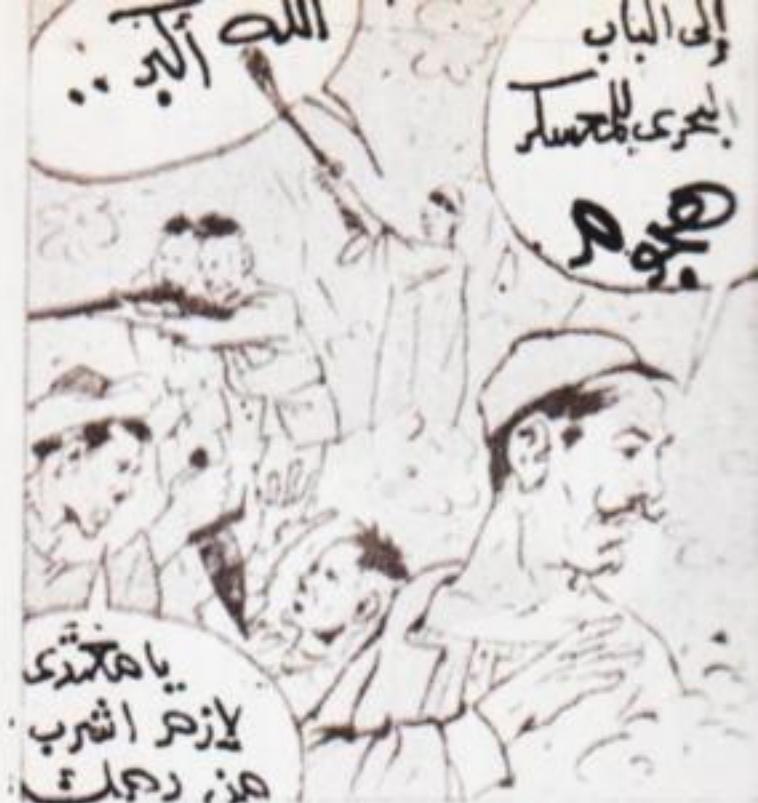 إلى الباب
البحرى للمعسكر
هجوم
الله أكبر..
يا معتدى
لازم اشرب
من دمك